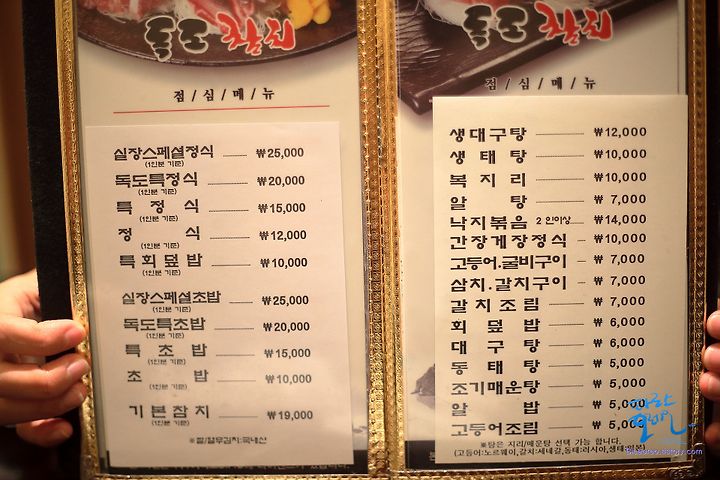 독도참치
점/심/메/뉴
실장스페셜정식 ₩25,000
(1인분 기준)
독도특정식 ₩20,000
(1인분 기준)
특정식 ₩15,000
(1인분 기준)
정식 ₩12,000
(1인분 기준)
특회덮밥 ₩10,000
(1인분 기준)
실장스페셜초밥 ₩25,000
(1인분 기준)
독도특초밥 ₩20,000
(1인분 기준)
특초밥 ₩15,000
(1인분 기준)
초밥 ₩10,000
(1인분 기준)
기본참치 ₩19,000
(1인분 기준)
※쌀/깔두김치:국내산
독도참치
점/심/메/뉴
생대구탕 ₩12,000
생태탕 ₩10,000
복지리 ₩10,000
알탕 ₩7,000
낙지볶음 2인이상 ₩14,000
간장게장정식 ₩10,000
고등어.굴비구이 ₩7,000
삼치.갈치구이 ₩7,000
갈치조림 ₩7,000
회덮밥 ₩6,000
대구탕 ₩6,000
동태탕 ₩5,000
조기매운탕 ₩5,000
알밥 ₩5,000
고등어조림 ₩5,000
※탕은 지리/매운탕 선택 가능 합니다.
(고등어:노르웨이,갈치:세네갈,동태:러시아,생태:일본)